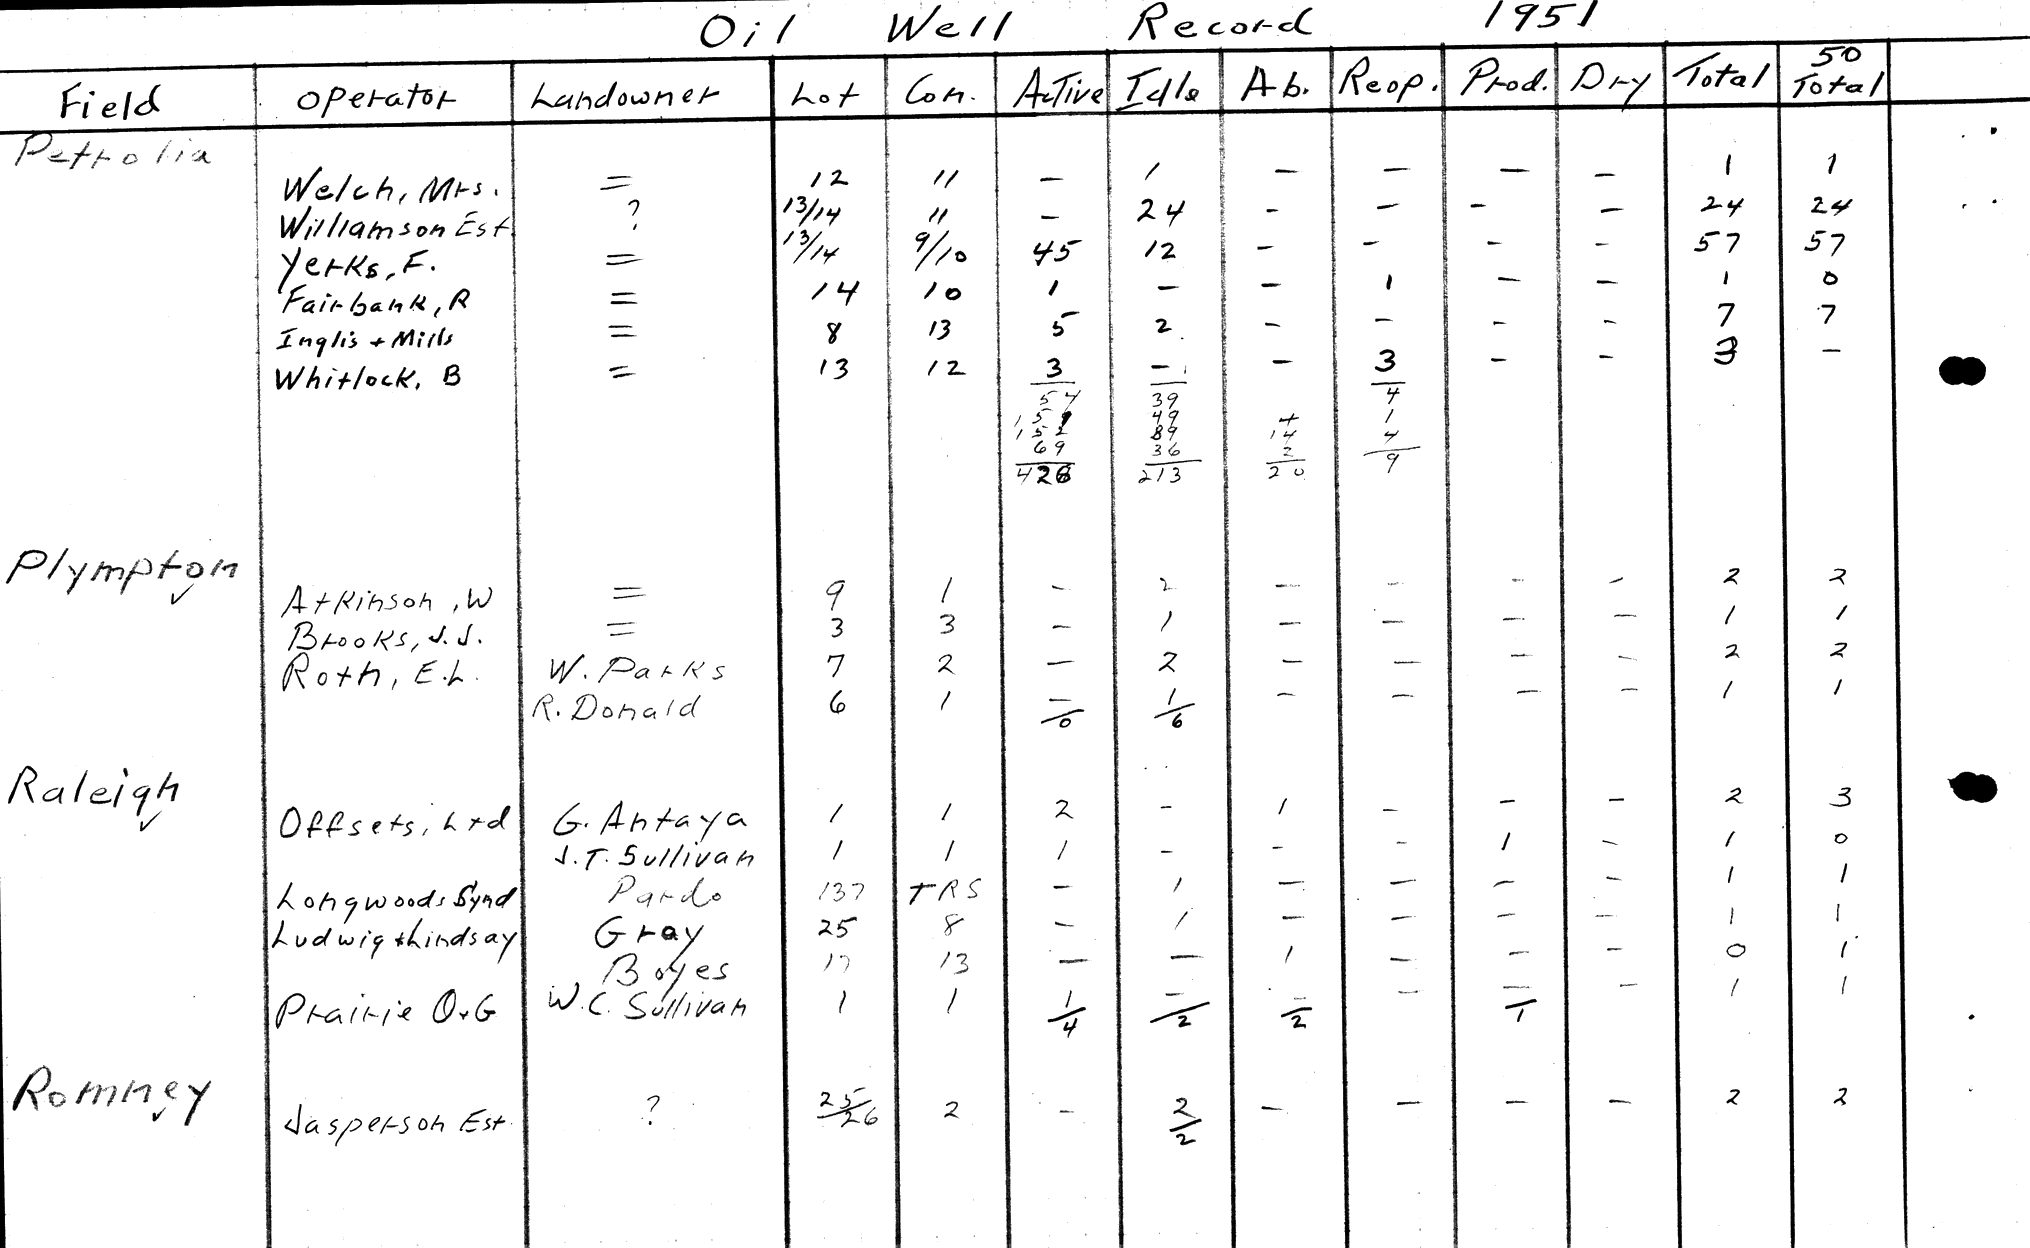 Oil Well Record 1951
Field Operator Landowner Lot Con. Active Idle Ab. Reop. Prod. Dry Total 50 Total
Petrolia
Welch, Mrs. = 12 11 – 1 – – – – 1 1
Williamson Est. ? 13/14 11 – 24 – – – – 24 24
Yerks, F. = 13/14 9/10 45 12 – – – – 57 57
Fairbank, R = 14 10 1 – – 1 – – 1 0
Inglis + Mills = 8 13 5 2 – – – – 7 7
Whitlock, B = 13 12 3 – – 3 – – 3 –
54 39 4
49 4 1
152 89 14 4
69 36 2
426 213 20 9
Plympton ✓
Atkinson, W = 9 1 – 2 – – – – 2 2
Brooks, J.J. = 3 3 – 1 – – – – 1 1
Roth, E.L. W. Parks 7 2 – 2 – – – – 2 2
R. Donald 6 1 – 1 – – – – 1 1
0 6
Raleigh ✓
Offsets, Ltd G. Antaya 1 1 2 – 1 – – – 2 3
J.T. Sullivan 1 1 1 – – – 1 – 1 0
Longwoods Synd Pardo 137 TRS – 1 – – – – 1 1
Ludwig + Lindsay Gray 25 8 – 1 – – – – 1 1
Boyes 17 13 – – 1 – – – 0 1
Prairie O+G W.C. Sullivan 1 1 1 – – – – – 1 1
4 2 2 1
Romney ✓
Jasperson Est. ? 25/26 2 – 2 – – – – 2 2
2